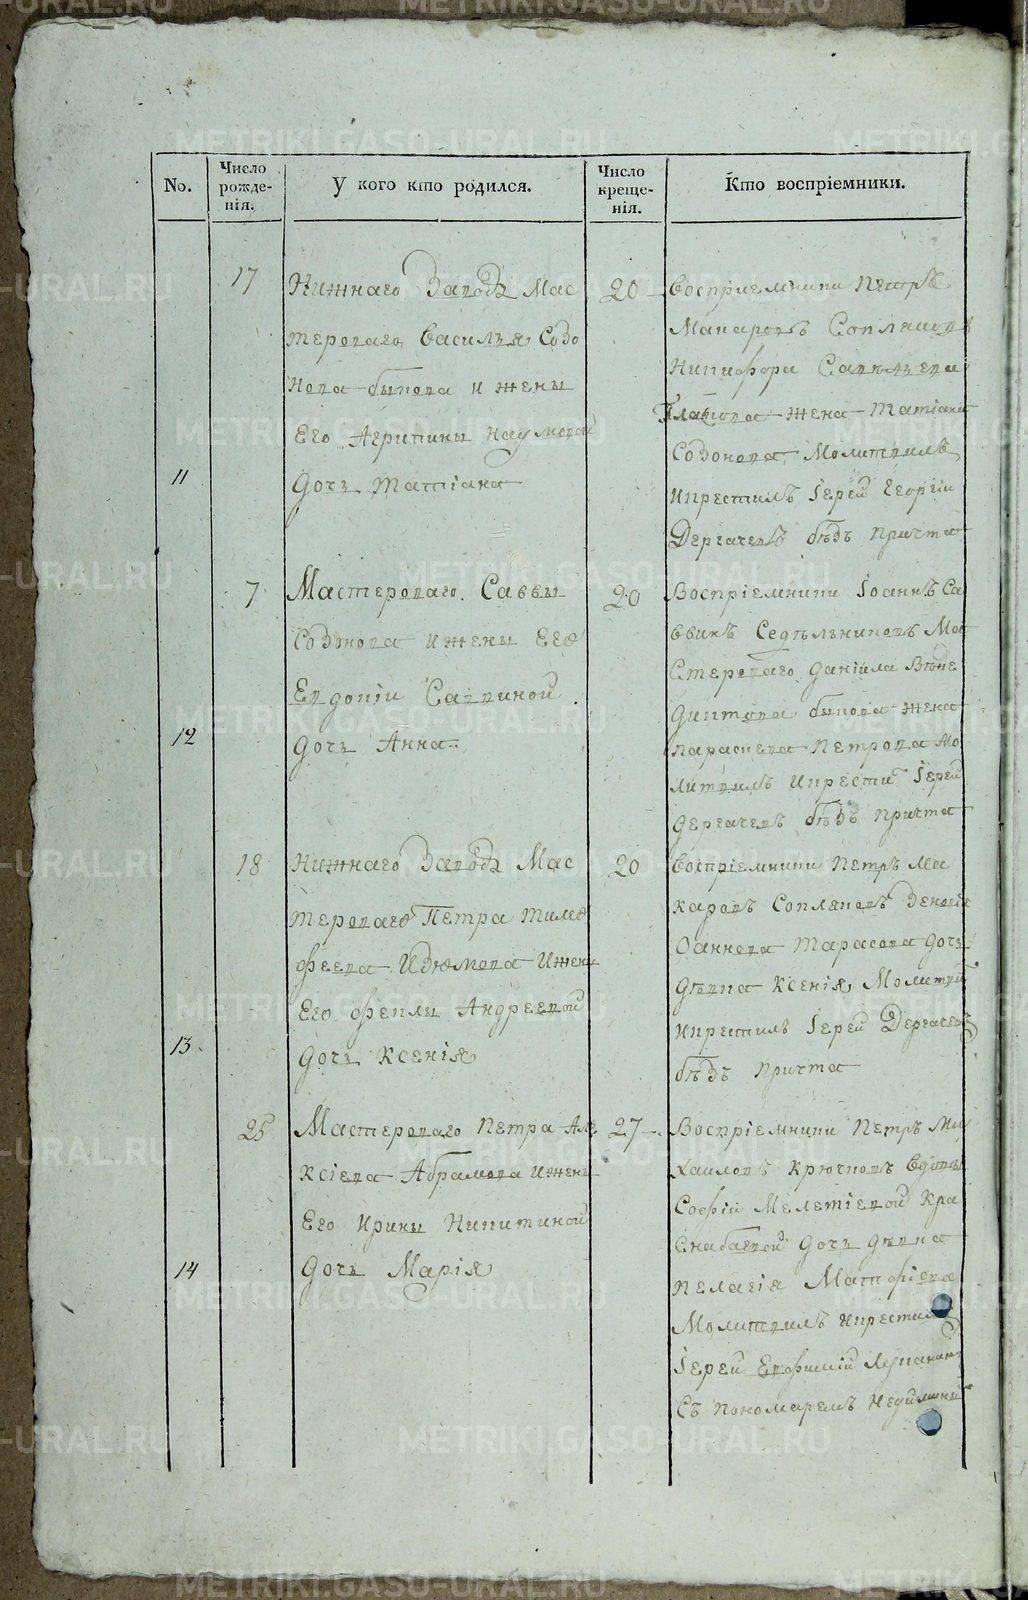 No.
Число рожденія.
У кого кто родился.
Число крещенія.
Кто воспріемники.
17
Нижнаго Завода Мас
тероваго Василья Содо
нова быкова и жены
Его Агрипины Наумовой
11
Дочь Татіана
20
Восприемники Петръ
Макаровъ
Никифора Савельева
жена Татіана
Содонова Молитвилъ
икрестилъ Іерей Георгіи
Дергачевъ бѣзъ причта
7
Мастероваго Саввы
Содонова ижены Его
Евдокіи Саввиной
12
Дочь Анна
20
Воспріемники Іоаннъ Са
ввинъ Седѣльниковъ Ма
стероваго Даніила Вѣне
диктова быкова жена
параскева Петрова Мо
литвилъ икрести Іерей
дергачевъ бѣзъ причта
18
Нижнаго Заводъ Мас
тероваго Петра Тимо
феева Идюмова Ижены
Его феклы Андреевой
13
Дочь Ксенія
20
Воспріемники Петръ Ма
каровъ
Тарасова дочь
дѣвка Ксенія, Молитвил
икрестилъ Іерей Дергачевъ
бѣзъ причта
25
Мастероваго Петра Але
ксіева Абрамова ижены
Его Ирины Никитиной
14
Дочь Марія
27
Воспріемники Петръ Ми
хаиловъ Крючковъ Вдовы
Софіи Мелетіевой Кра
дочь дѣвка
пелагія Матфіева
Молитвилъ икрестилъ
Іерей Евфимій
Съ пономаремъ
METRIKI.GASO-URAL.RU